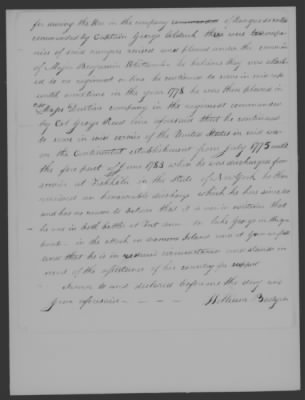 for during the War in the company of Rangers
commanded by Captain George Aldrich there was two compa
nies of said rangers raised was placed under the comman
of Major Benjamin Whitcomb he believes they was attach
ed to no regiment or line he continued to serve in said corps
until sometime in the year 1778 he was then placed in
Capt company in the regiment commanded
by Col George Reed line aforesaid that he continued
to serve in said service of the United States in said war
on the Continental establishment from July 1775 until
the first part of June 1783 when he was discharged from
service at Fishkiln in the state of New York he then
received an honourable discharge which he has since lost
and has no reason to believe that it is now in existence that
he was in both battle at Fort on lake George in the gun
boats in the attack on Island and at
and that he is in reduced circumstances and stands in
need of the assistance of his country for support
Sworn to and declared before me the day and
year aforesaid